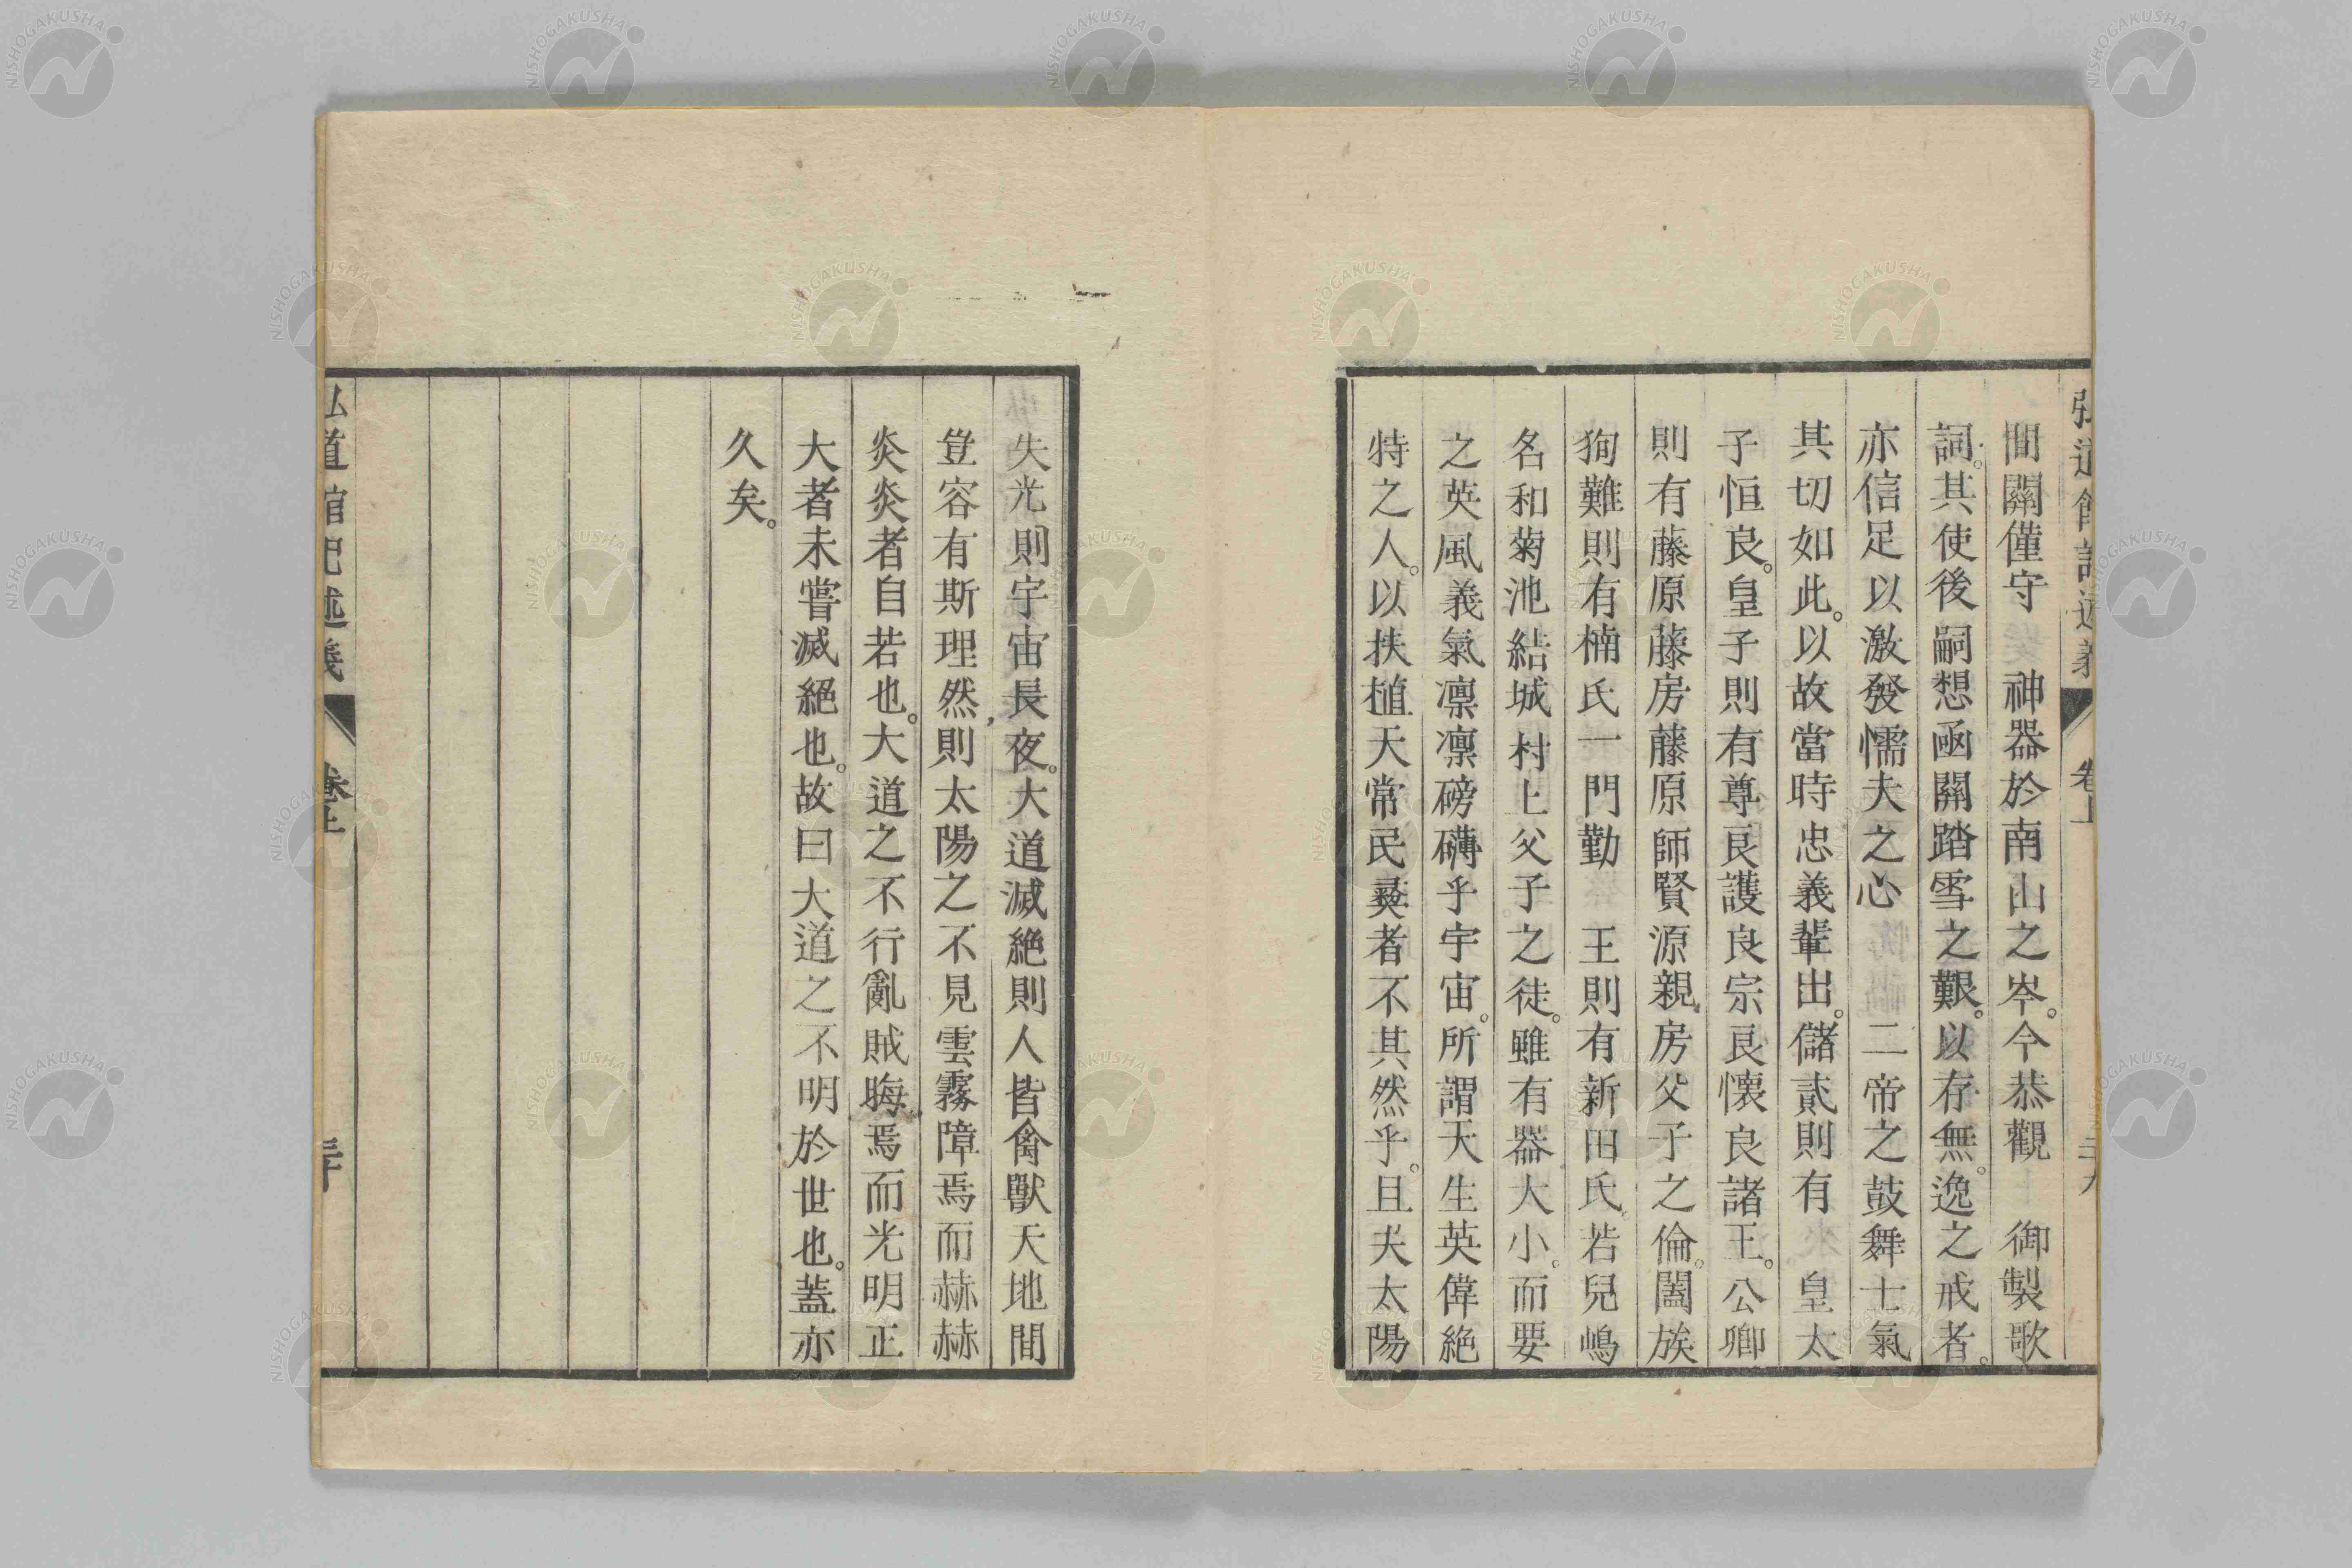 弘道館記述義 卷上 二十九
間關僅守 神器於南山之岑。今恭觀 御製歌
詞。其使後嗣想凾關踏雪之艱。以存無逸之戒者。
亦信足以激發懦夫之心 二帝之鼓舞士氣
其切如此。以故當時忠義輩出。儲貳則有 皇太
子恒良。皇子則有尊良護良宗良懷良諸王。公卿
則有藤原藤房藤原師賢源親房父子之倫。闔族
狥難則有楠氏一門勤 王則有新田氏若兒嶋
名和菊池結城村上父子之徒。雖有器大小。而要
之英風義氣凛凛磅礴乎宇宙。所謂天生英偉絶
特之人。以扶植天常民彛者不其然乎。且夫太陽
失光則宇宙長夜。大道滅絶則人皆禽獸天地間
豈容有斯理然則太陽之不見雲霧障焉而赫赫
炎炎者自若也。大道之不行亂賊晦焉而光明正
大者未嘗滅絕也。故曰大道之不明於世也。蓋亦
久矣。
弘道館記述義 卷上 三十
NISHOGAKUSHA